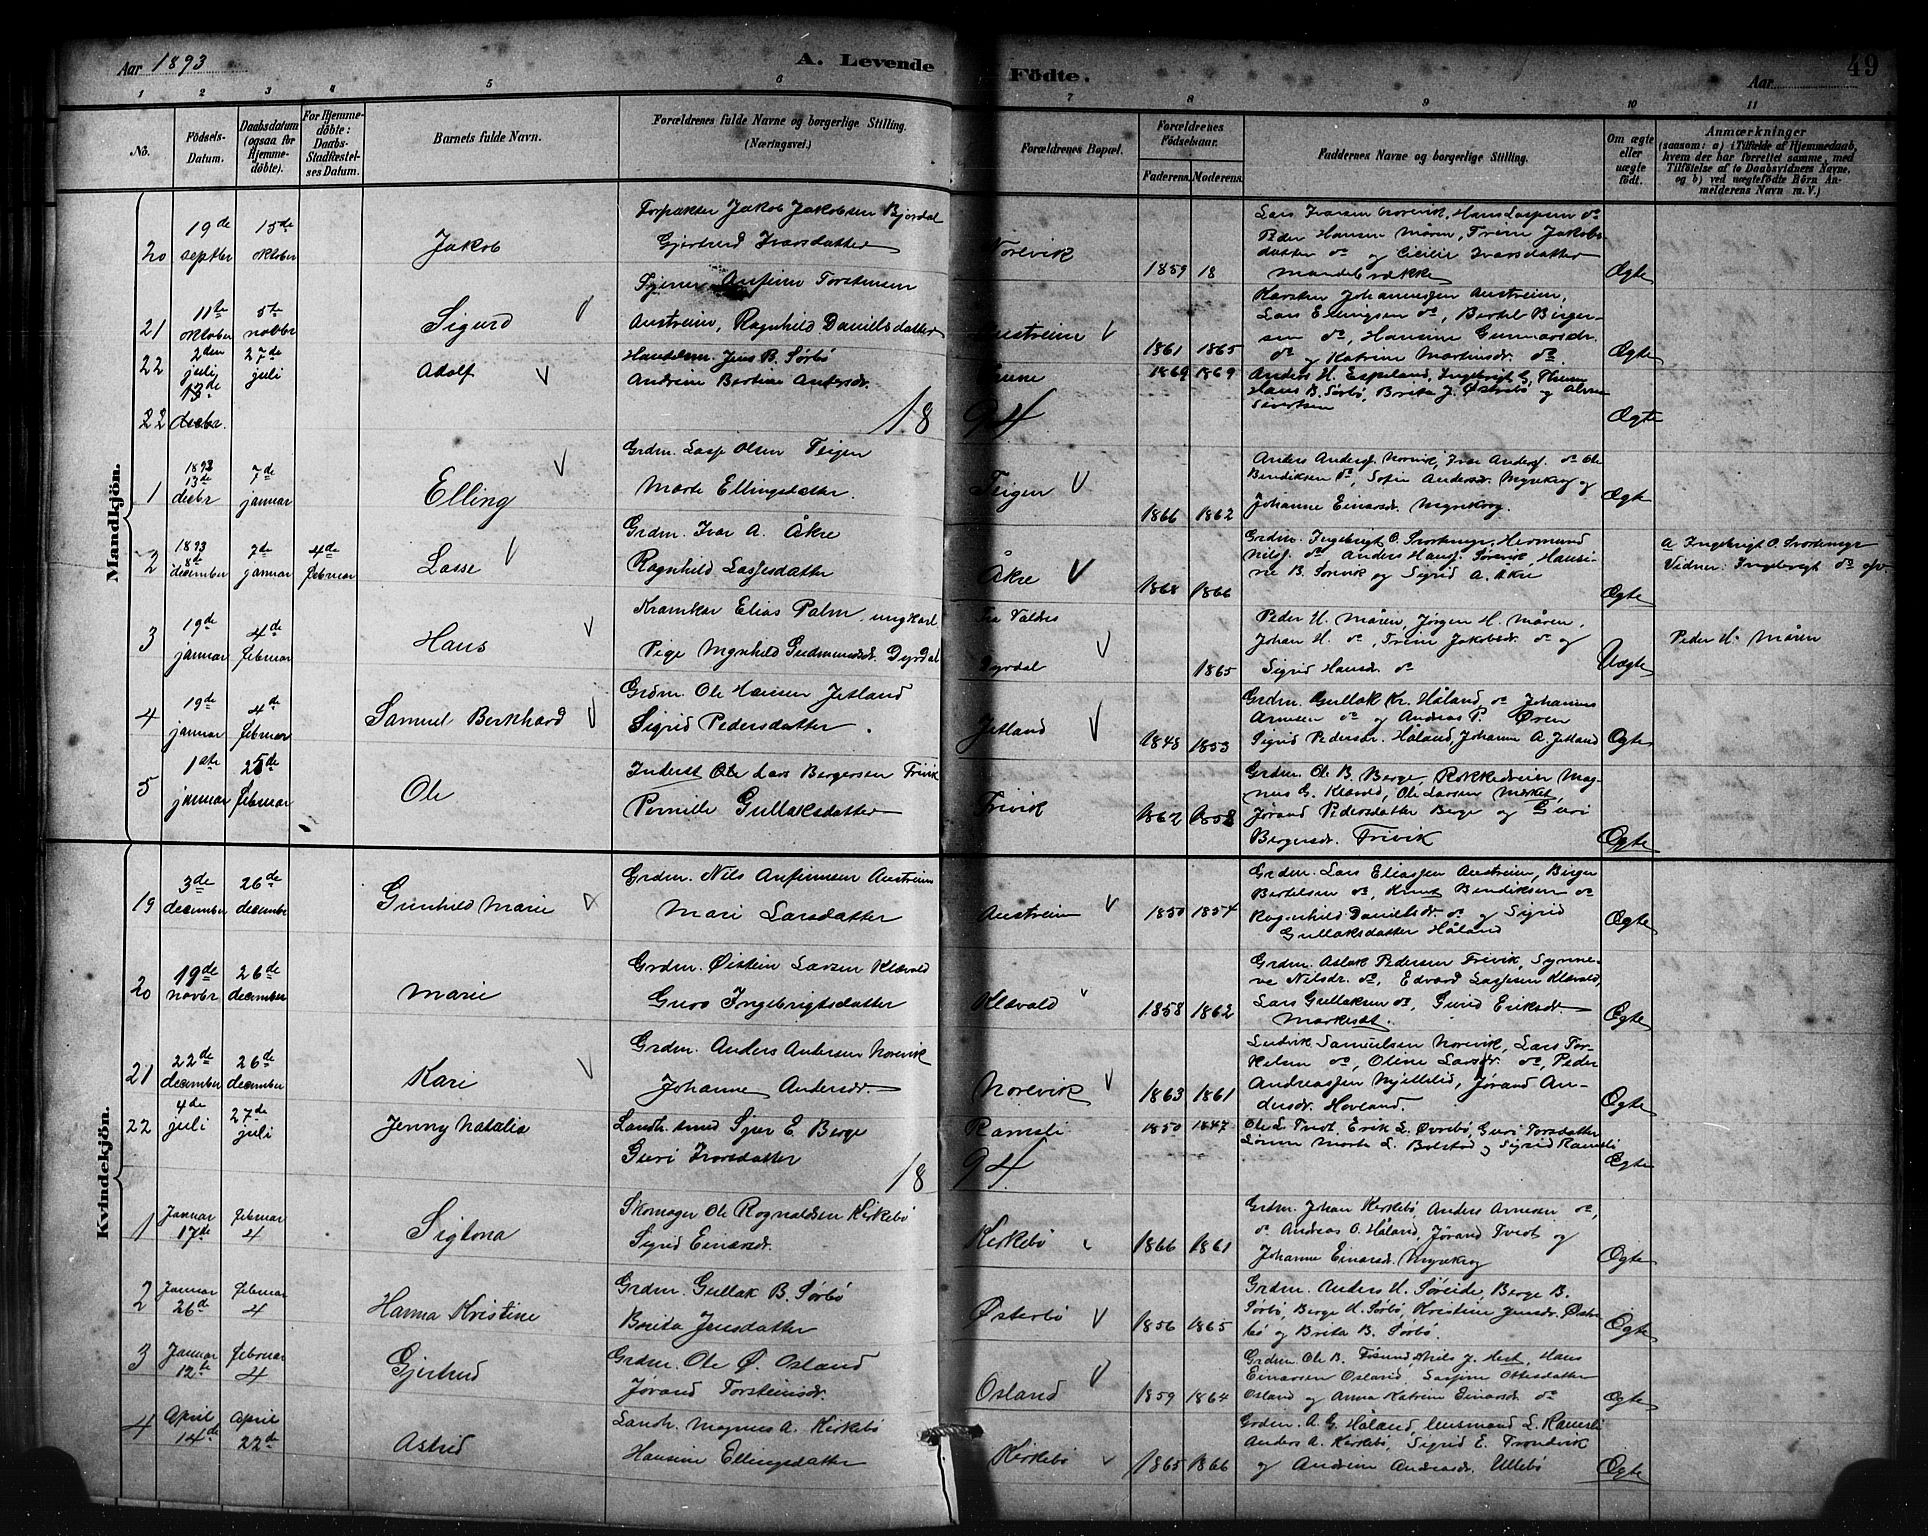 Aar 1893
A. Levende Födte.
Aar
49
1 2 3 4 5 6 7 8 9 10 11
No.
Födsels-Datum.
Daabsdatum (ogsaa for Hjemme-döbte).
For Hjemme-döbte: Daabs-Stadfæstel-ses Datum.
Barnets fulde Navn.
Forældrenes fulde Navne og borgerlige Stilling. (Næringsvei.)
Forældrenes Bopæl.
Forældrenes Födselsaar.
Faderens. Moderens.
Faddernes Navne og borgerlige Stilling.
Om ægte eller uægte födt.
Anmærkninger
(saasom: a) i Tilfælde af Hjemmedaab, hvem der har forrettet samme, med Tilföielse af to Daabsvidners Navne, og b) ved uægtefödte Börn An-melderens Navn m. V.)
Mandkjön.
20 19de septbr 15de oktober Jakob
Forpakter Jakob Jakobsen Bjordal
Gjertrud Ivarsdatter
Norevik 1859 18
Lars Ivarsen Norevik, Hans Lassesen do
Peder Hansen Måren, Trine Jakobs
datter do og Cicilie Ivarsdatter
Ægte
21 11te oktober 5te novbr Sigurd
Anfinn Torstensen
Austreim, Ragnhild Danielsdatter
Austreim 1861 1865
Karsten Johannesen Austreim,
Lars Ellingsen do, Bertel Berger-
sen do, Hansine Gunnarsdr.
do og Katrine Martinsdr. do
Ægte
22 2den juli 27de juli Adolf
Handelsm. Jens B. Sørbø
Andrine Bertine Andersdr.
1869 1869
Anders H. Espeland, Ingebrigt G.
Hans B. Sørbø, Brita J. Østerbø og
Sivertsen
Ægte
22 13de decbr.
18 94
1 1893 13de decbr 7de januar Elling
Grdm. Lasse Olsen Teigen
Marte Ellingsdatter.
Teigen 1866 1862
Anders Anders. Norevik, Ivar Anders. do Ole
Bendiksen do, Sofie Andersdr. Myrekrog og
Johanne Einarsdr. Myrekrog.
Ægte
2 1893 8de december 7de januar 4de februar Lasse
Grdm. Ivar A. Åkre
Ragnhild Lassesdatter
Åkre 1868 1866
Grdm. Ingebrigt O. Svortemyr, Hermund
Nils. do Anders Hans. Sørevik, Hansi-
ne B. Sørevik og Sigrid A. Åkre
Ægte
a Ingebrigt O. Svortemyr
Vidner: Ingebrigt do
3 19de januar 4de februar Hans
Kramkar Elias Palm, ungkarl
Pige Magnhild Gudmundsdr. Dyrdal
Fra Valdres
Dyrdal 1865
Peder H. Måren, Jørgen H. Måren,
Johan H. do, Trine Jakobsdr. do og
Sigrid Hansdr. do
Uægte
Peder H. Måren
4 19de januar 4de februar Samuel Berkhard
Grdm. Ole Hansen Jetland
Sigrid Pedersdatter.
Jetland 1848 1853
Grdm. Gullak Kr. Håland, do Johannes
Arnesen do og Andreas P. Øren
Sigrid Pedersdr. Håland, Johanne A. Jetland
Ægte
5 1ste januar 25de februar Ole
Inderst Ole Lars Bergersen Trivik
Pernille Gullaksdatter
Trivik 1862 1858
Grdm. Ole B. Berge, Rokkedreier Mag-
nus G. Klævold, Ole Larsen Merket,
Jørand Pedersdatter Berge og Guri
Bergersdr. Trivik
Ægte
Kvindekjön.
19 3de december 26de december Gunhild Marie
Grdm. Nils Anfinnsen Austreim
Mari Larsdatter
Austreim 1850 1854
Grdm. Lars Eliassen Austreim, Birger
Bertelsen do, Knut Bendiksen do
Ragnhild Danielsdr. do og Sigrid
Gullaksdatter Håland
Ægte
20 19de novbr 26de december Marie
Grdm. Øistein Larsen Klævold
Guro Ingebrigtsdatter
Klævold 1858 1862
Grdm. Aslak Pedersen Trivik, Synne-
ve Nilsdr. do, Edvard Lassesen Klævold,
Lars Gullaksen do, Gurid Eriksdr.
Ægte
21 22de december 26de december Kari
Grdm. Anders Andersen Norevik
Johanne Andersdr.
Norevik 1863 1861
Ludvik Samuelsen Norevik, Lars Tor-
kelsen do, Oline Larsdr. do, Peder
Andreassen Mjellelid, Jørand An-
dersdr. Hovland.
Ægte
22 4de juli 27de juli Jenny Natalia
Landh. Sjur E. Berge
Guri Ivarsdatter
Ramsli 1850 1847
Ole L. Tvedt Erik L. Øvrebø, Guri Torsdatter
Marte L. Bolstad og Sigrid Ramsli
Ægte
18 94
1 Januar 17de februar 4 Sigtona
Skomager Ole Rognaldsen Kirkebø
Sigrid Einarsdr.
Kirkebø 1866 1861
Grdm. Johan Kirkebø Anders Arnesen do,
do Andreas O. Håland, Jørand Tvedt og
Johanne Einarsdr. Myrekrog
Ægte
2 Januar 26de februar 4 Hanna Kristine
Grdm. Gullak B. Sørbø
Brita Jensdatter
Østerbø 1856 1865
Grdm. Anders H. Søreide, Berge B.
Sørbø, Berge H. Sørbø, Kristine Jensdr. Øster
bø og Brita B. Sørbø.
Ægte
3 Januar 12te februar 4 Gjertrud
Grdm. Ole Ø. Osland
Jørand Torsteinsdr.
Osland 1859 1864
Grdm. Ole B. Nils J. Hans
Einarsen Osland, Ottesdatter
Osland og Anna Katrine Einarsdr. do
Ægte
4 April 14de April 22de Astrid
Landh. Magnus A. Kirkebø
Hansine Ellingsdatter
Kirkebø 1865 1866
Grdm. A. G. Håland, L. Ramsli
Anders A. Kirkebø, Sigrid E. Trondvik
og Andrine Andersdr. Ullebø
Ægte